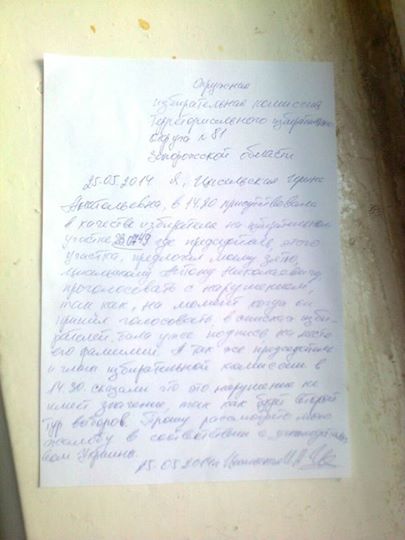 Окружная
избирательная комиссия
Территориального избирательного
округа №81
Запорожской области
25.05.2014 Я, Ирина
Анатольевна, в 14.20 присутствовала
в качестве избирателя на избирательном
участке где председатель этого
участка, предложил моему зятю,
Антону Николаевичу
проголосовать с нарушением,
так как, на момент когда он
пришёл голосовать в списках изби-
рателей, была уже подпись на месте
его фамилии. А так же председатель
и глава избирательной комиссии в
14.30. сказали что это нарушение не
имеет значение, так как будет второй
тур выборов. Прошу рассмотреть мою
жалобу в соответствии с законодательст-
вом Украины.
25.05.2014г